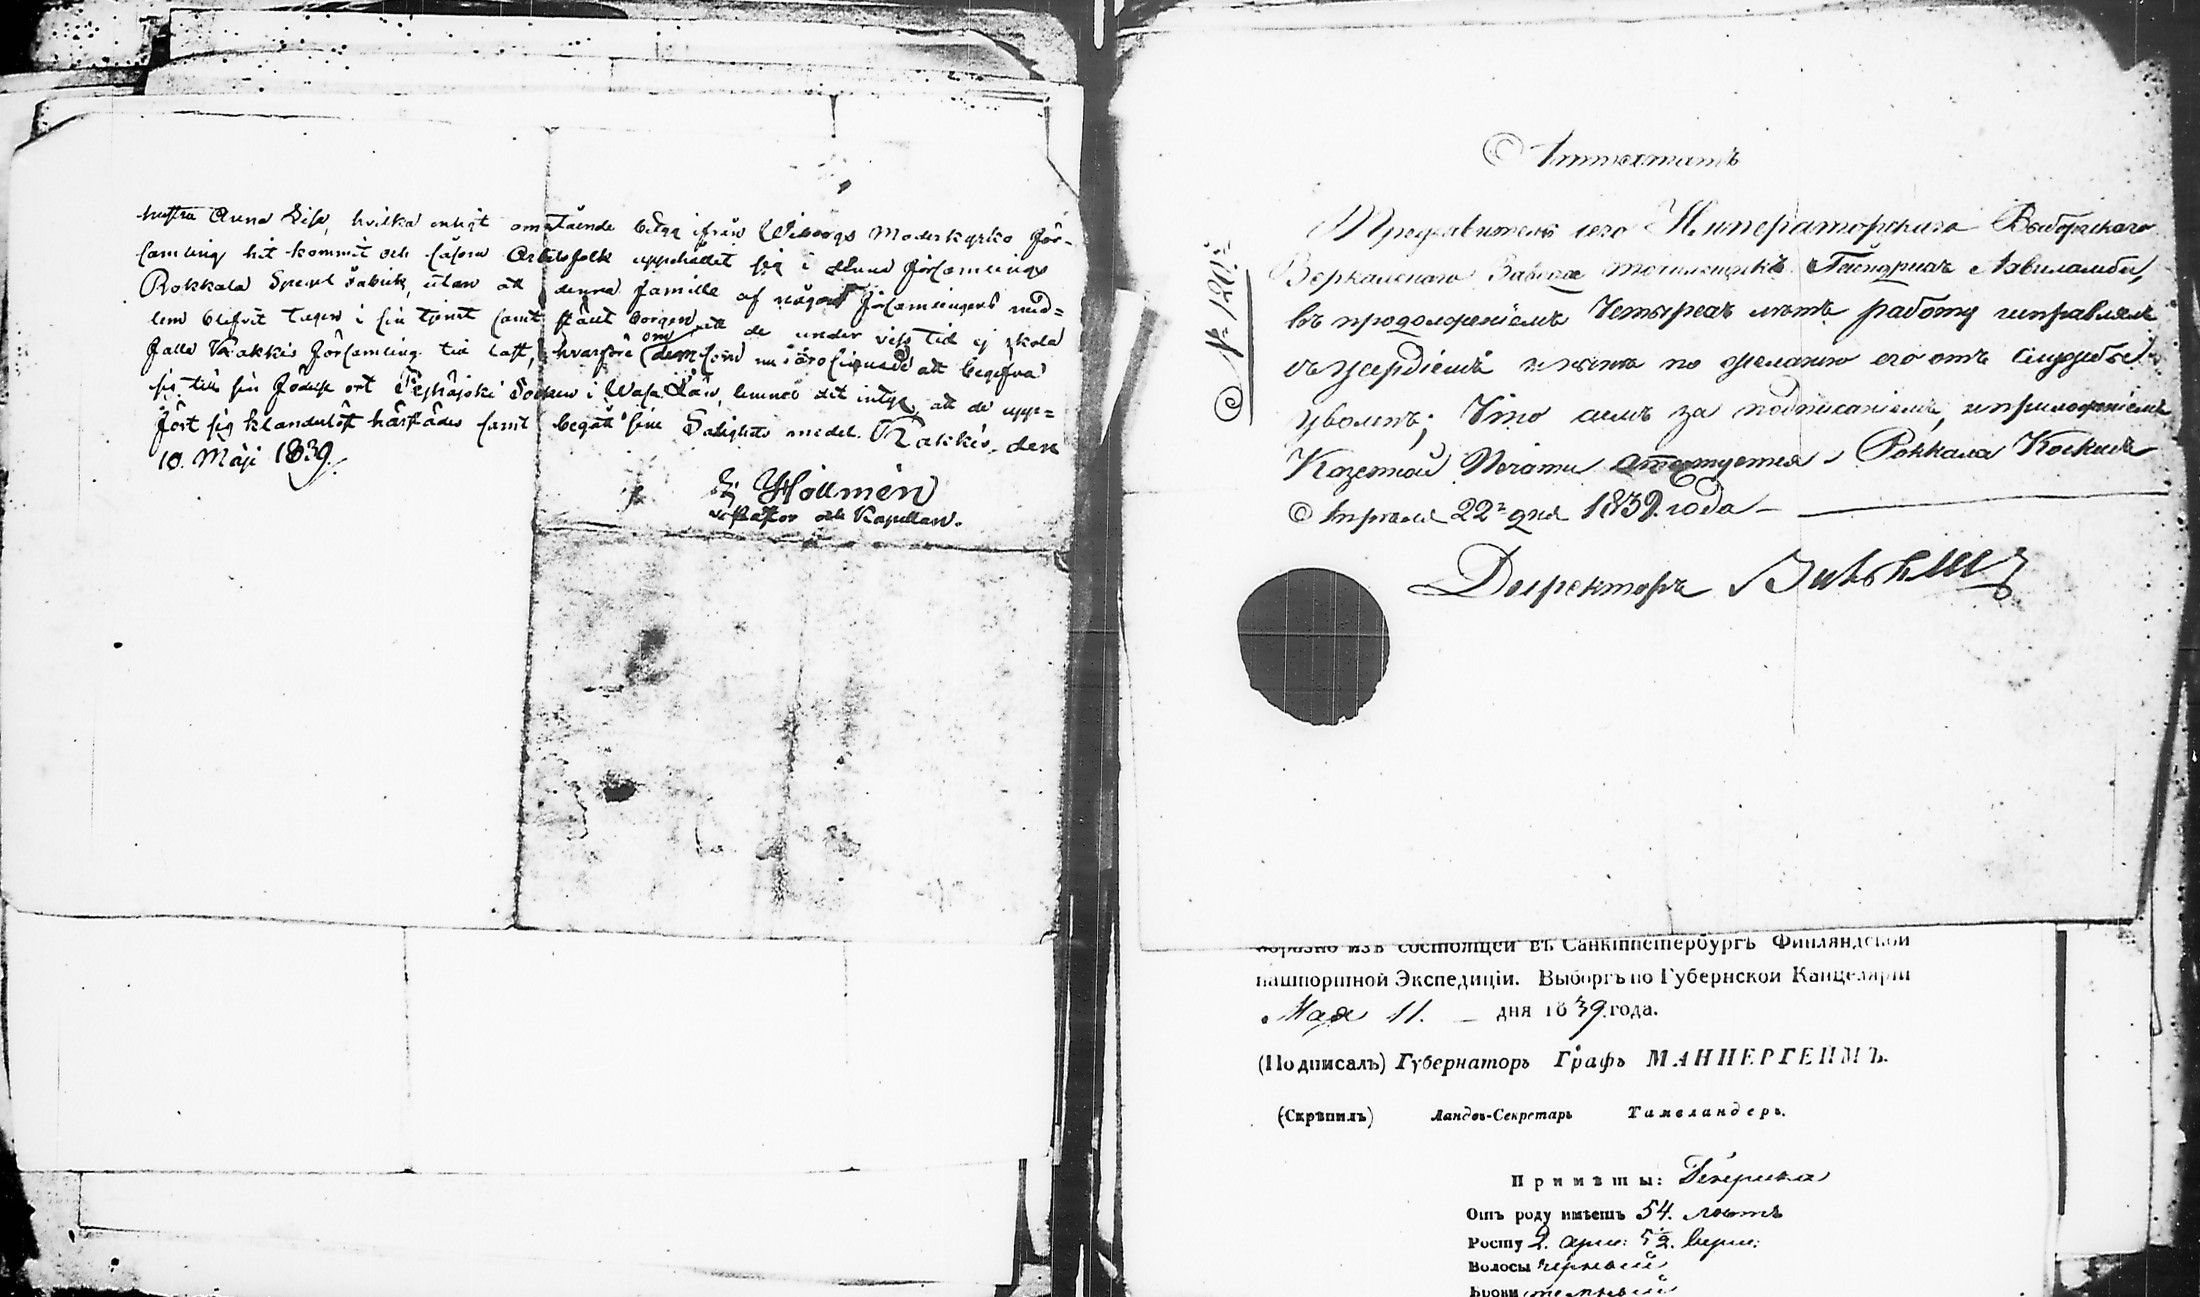 hustru Anna Lisa, hvilka enligt omstående betyg ifrån Wiborgs Moderkyrko För-
samling hit kommit och såsom Arbetsfolk uppehållit sig i denna församlings
Rokkala Spegel fabrik, utan att denna famille af någon församlingens med-
lem blifvit tagen i sin tjenst samt stält borgen om att de under viss tid ej skola
falla Kakkis församling till last, hvarföre dem som nu äro sinnade att begifva
sig till sin födelse ort Pyhäjoki Socken i Wasa Län, lemnas det intyg, att de upp-
fört sig klanderlöst härstädes samt begått sine Salighets medel. Kakkis, den
10. Maji 1839.
Hollmén
v. Pastor och Kapellan.
Аттестатъ
№ 120.
Предъявитель сего Императорскаго Выборгскаго
Зеркальнаго Завода Гендрихъ
въ продолженіемъ Четырехъ лѣтъ работу исправлялъ
съ усердіемъ и нынѣ по желанію его отъ Службы
уволенъ; Что симъ за подписаніемъ, и приложеніемъ
Казенной Печати Роккала
Апрѣля 22го дня 1839. года
Директоръ
образно изъ состоящей въ Санктпетербургѣ Финляндской
пашпортной Экспедиціи. Выборгъ по Губернской Канцеляріи
Мая 11. дня 1839 года.
(Подписалъ) Губернаторъ Графъ МАННЕРГЕЙМЪ.
(Скрѣпилъ) Ландъ-Секретарь Тамеландеръ.
Примѣты: Гендриха
Отъ роду имѣетъ 54. лѣтъ
Росту 2. арш: 5½. верш:
Волосы черный
Брови темный